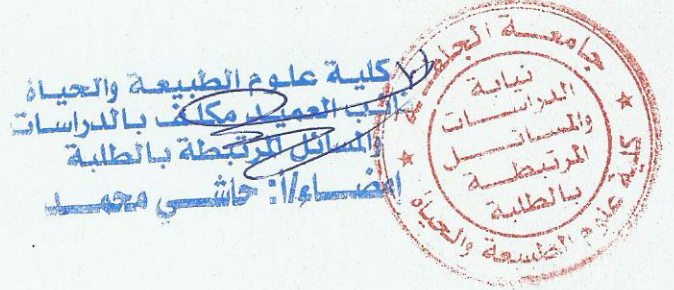 كلية علوم الطبيعة والحياة
نائب العميد مكلف بالدراسات
والمسائل المرتبطة بالطلبة
امضاء/أ: حاشي محمد
جامعة الجلفة
نيابة
الدراسات
والمسائل
المرتبطة
بالطلبة
كلية علوم الطبيعة والحياة